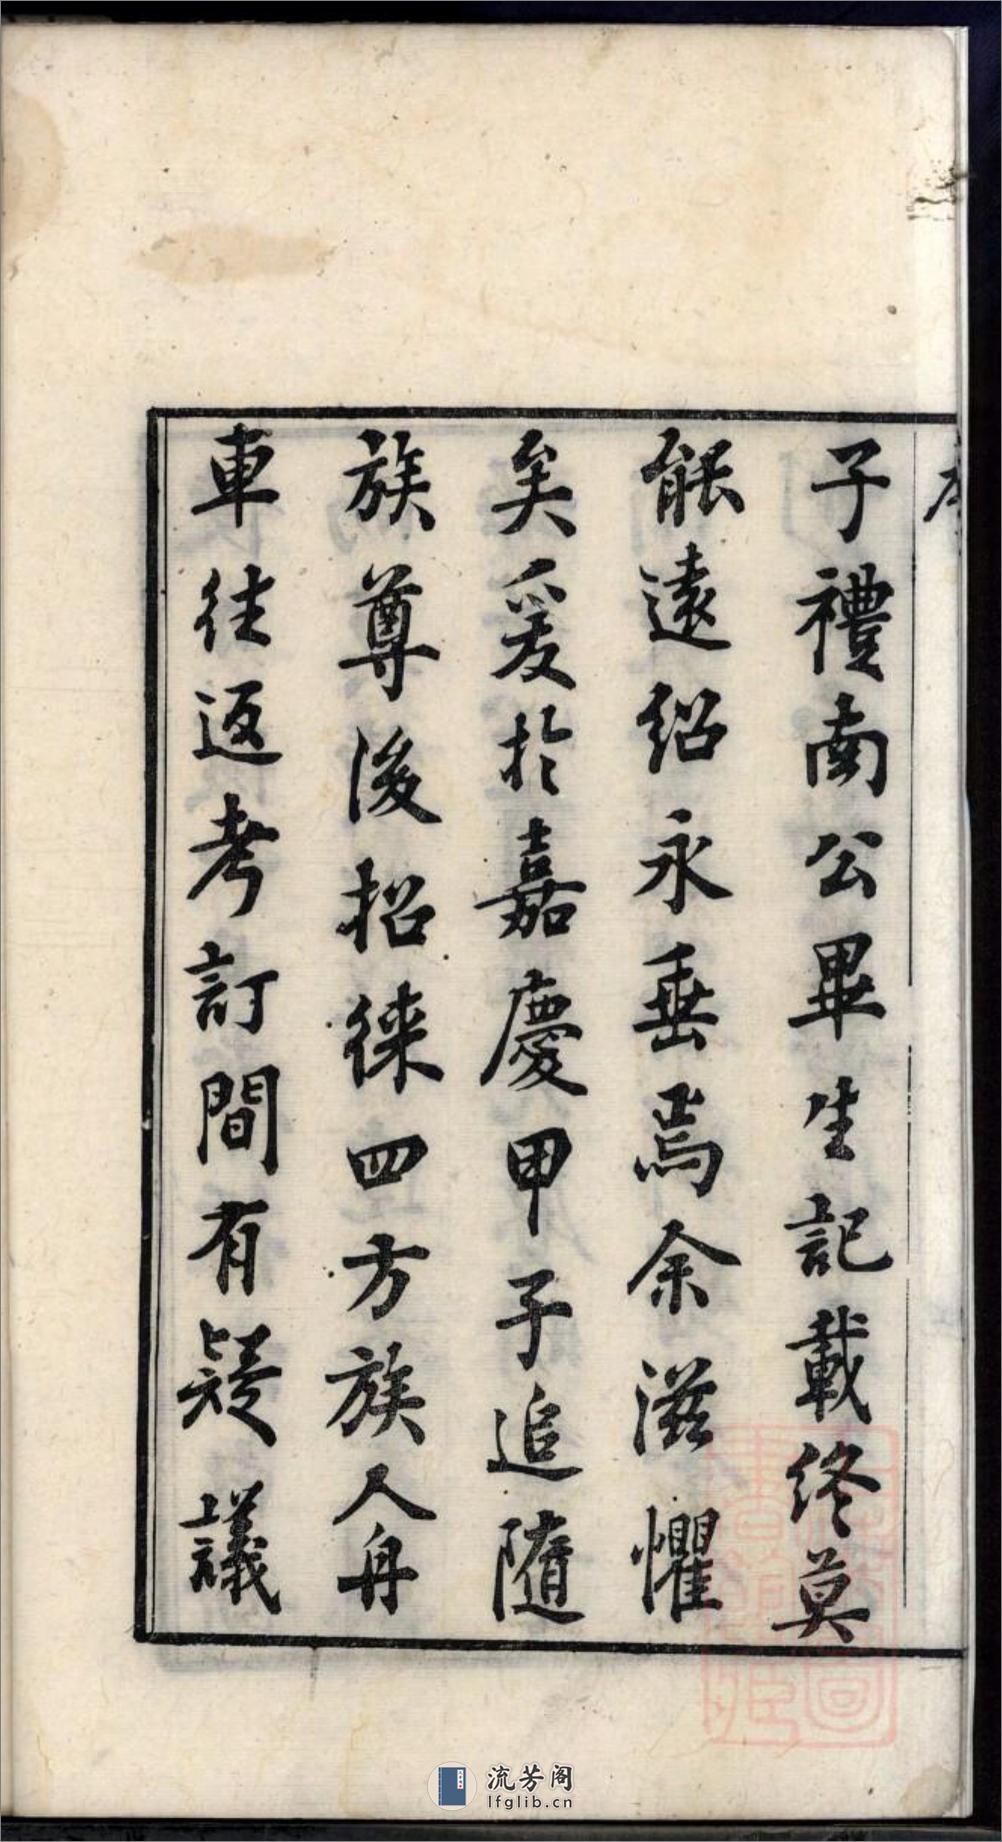 子禮南公畢生記載終莫
能遠紹永垂焉余滋懼
矣爰於嘉慶甲子追隨
族尊後招徠四方族人舟
車往返考訂間有疑議
流芳阁
lfglib.cn